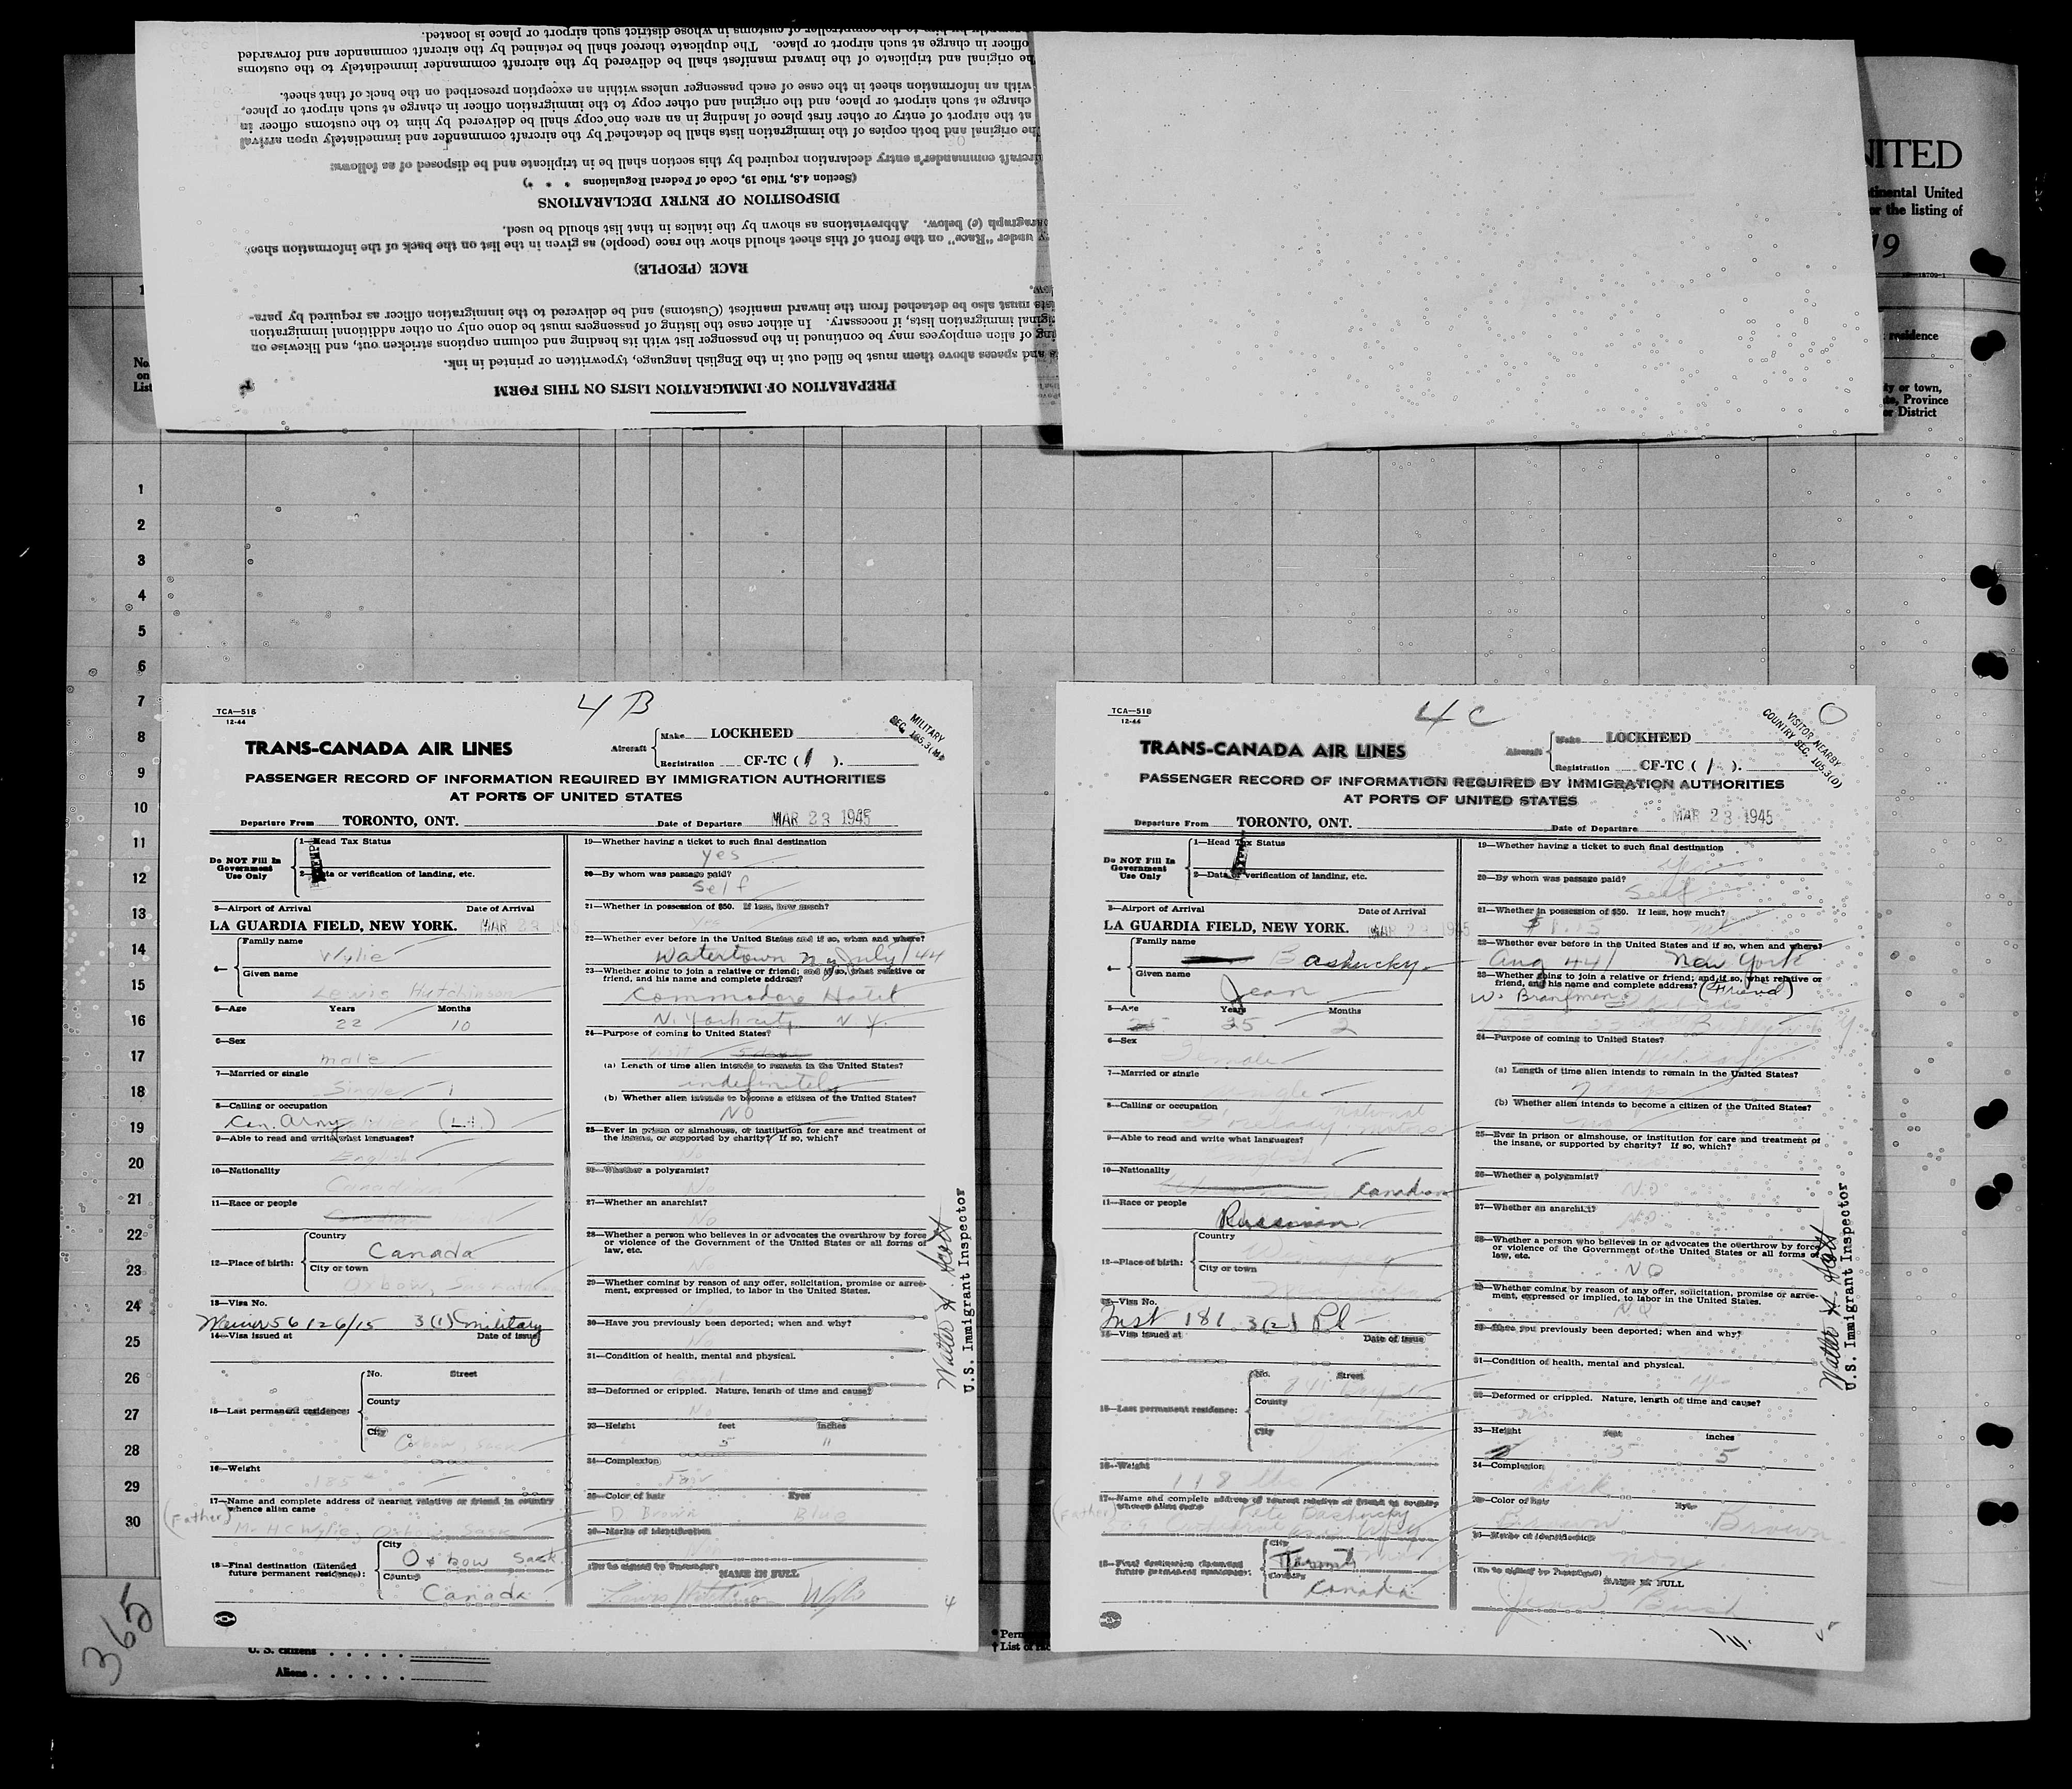 PREPARATION OF IMMIGRATION LISTS ON THIS FORM
and spaces above them must be filled out in the English language, typewritten or printed in ink.
of alien employees may be continued in the passenger list with its heading and column captions stricken out, and likewise on
original immigration lists, if necessary. In either case the listing of passengers must be done only on other additional immigration
must also be detached from the inward manifest (Customs) and be delivered to the immigration officer as required by para-
RACE (PEOPLE)
under "Race" on the front of this sheet should show the race (people) as given in the list on the back of the information sheet,
paragraph (e) below. Abbreviations as shown by the italics in that list should be used.
DISPOSITION OF ENTRY DECLARATIONS
(Section 4.8, Title 19, Code of Federal Regulations * * *)
aircraft commander's entry declaration required by this section shall be in triplicate and be disposed of as follows:
the original and both copies of the immigration lists shall be detached by the aircraft commander and immediately upon arrival
at the airport of entry or other first place of landing in an area one copy shall be delivered by him to the customs officer in
charge at such airport or place, and the original and other copy to the immigration officer in charge at such airport or place,
with an information sheet in the case of each passenger unless within an exception prescribed on the back of that sheet.
the original and triplicate of the inward manifest shall be delivered by the aircraft commander immediately to the customs
officer in charge at such airport or place. The duplicate thereof shall be retained by the aircraft commander and forwarded
by him to the comptroller of customs in whose district such airport or place is located.
NITED
tinental United
or the listing of
19
residence
ty or town,
te, Province
or District
No.
on
List
1
2
3
4
5
6
7
8
9
10
11
12
13
14
15
16
17
18
19
20
21
22
23
24
25
26
27
28
29
30
4 B
TCA—518
12-44
MILITARY
SEC. 105.3(M)
TRANS-CANADA AIR LINES
Aircraft
Make LOCKHEED
Registration CF-TC ( 1 ).
PASSENGER RECORD OF INFORMATION REQUIRED BY IMMIGRATION AUTHORITIES
AT PORTS OF UNITED STATES
Departure From TORONTO, ONT. Date of Departure MAR 23 1945
Do NOT Fill In
Government
Use Only
1—Head Tax Status
2—Data or verification of landing, etc.
3—Airport of Arrival Date of Arrival
LA GUARDIA FIELD, NEW YORK. MAR 23 1945
4—
Family name
Wylie
Given name
Lewis Hutchinson
5—Age Years Months
22 10
6—Sex
male
7—Married or single
Single
8—Calling or occupation
Can. Army (Lt.)
9—Able to read and write what languages?
English
10—Nationality
Canadian
11—Race or people
12—Place of birth:
Country
Canada
City or town
Oxbow, Saskatchewan
13—Visa No.
56126/15 3(1) military
14—Visa issued at Date of issue
15—Last permanent residence:
No. Street
County
City
Oxbow, Sask
16—Weight
185
17—Name and complete address of nearest relative or friend in country
whence alien came
(Father) Mr H.C. Wylie, Oxbow, Sask
18—Final destination (Intended
future permanent residence):
City
Oxbow Sask.
Country
Canada
19—Whether having a ticket to such final destination
yes
20—By whom was passage paid?
Self
21—Whether in possession of $50. If less, how much?
Yes
22—Whether ever before in the United States and if so, when and where?
Watertown N.Y. July/44
23—Whether going to join a relative or friend; and if so, what relative or
friend, and his name and complete address?
Commodore Hotel
N. York city N.Y.
24—Purpose of coming to United States?
Visit
(a) Length of time alien intends to remain in the United States?
indefinitely
(b) Whether alien intends to become a citizen of the United States?
NO
25—Ever in prison or almshouse, or institution for care and treatment of
the insane, or supported by charity? If so, which?
No
26—Whether a polygamist?
No
27—Whether an anarchist?
No
28—Whether a person who believes in or advocates the overthrow by force
or violence of the Government of the United States or all forms of
law, etc.
No
29—Whether coming by reason of any offer, solicitation, promise or agree-
ment, expressed or implied, to labor in the United States.
No
30—Have you previously been deported; when and why?
No
31—Condition of health, mental and physical.
Good
32—Deformed or crippled. Nature, length of time and cause?
No
33—Height feet inches
5 11
34—Complexion
Fair
35—Color of hair Eyes
D. Brown Blue
36—Marks of identification
(To be signed by Passenger) NAME IN FULL
Lewis Hutchinson Wylie
4
Walter H. Scott
U.S. Immigrant Inspector
4C
TCA—518
12-44
VISITOR NEARBY
COUNTRY SEC. 105.3(D)
TRANS-CANADA AIR LINES
Aircraft
Make LOCKHEED
Registration CF-TC ( 1 ).
PASSENGER RECORD OF INFORMATION REQUIRED BY IMMIGRATION AUTHORITIES
AT PORTS OF UNITED STATES
Departure From TORONTO, ONT. Date of Departure MAR 23 1945
Do NOT Fill In
Government
Use Only
1—Head Tax Status
2—Data or verification of landing, etc.
3—Airport of Arrival Date of Arrival
LA GUARDIA FIELD, NEW YORK. MAR 23 1945
4—
Family name
Bashucky
Given name
Jean
5—Age Years Months
25 2
6—Sex
Female
7—Married or single
Single
8—Calling or occupation
National
Motors
9—Able to read and write what languages?
English
10—Nationality
Canadian
11—Race or people
Russian
12—Place of birth:
Country
Winnipeg
City or town
13—Visa No.
Inst 181 3(2)
14—Visa issued at Date of issue
15—Last permanent residence:
No. Street
County
City
16—Weight
118 lbs
17—Name and complete address of nearest relative or friend in country
whence alien came
(Father) Pete Bashucky
18—Final destination (Intended
future permanent residence):
City
Toronto
Country
Canada
19—Whether having a ticket to such final destination
Yes
20—By whom was passage paid?
Self
21—Whether in possession of $50. If less, how much?
22—Whether ever before in the United States and if so, when and where?
Aug 44/ New York
23—Whether going to join a relative or friend; and if so, what relative or
friend, and his name and complete address? (Friend)
W.
24—Purpose of coming to United States?
Holiday
(a) Length of time alien intends to remain in the United States?
(b) Whether alien intends to become a citizen of the United States?
no
25—Ever in prison or almshouse, or institution for care and treatment of
the insane, or supported by charity? If so, which?
26—Whether a polygamist?
NO
27—Whether an anarchist?
NO
28—Whether a person who believes in or advocates the overthrow by force
or violence of the Government of the United States or all forms of
law, etc.
NO
29—Whether coming by reason of any offer, solicitation, promise or agree-
ment, expressed or implied, to labor in the United States.
NO
30—Have you previously been deported; when and why?
31—Condition of health, mental and physical.
32—Deformed or crippled. Nature, length of time and cause?
33—Height feet inches
5 5
34—Complexion
Dark
35—Color of hair Eyes
Brown Brown
36—Marks of identification
none
(To be signed by Passenger) NAME IN FULL
Jean Bush
Walter H. Scott
U.S. Immigrant Inspector
365
U. S. citizens
Aliens
* Perm
† List of